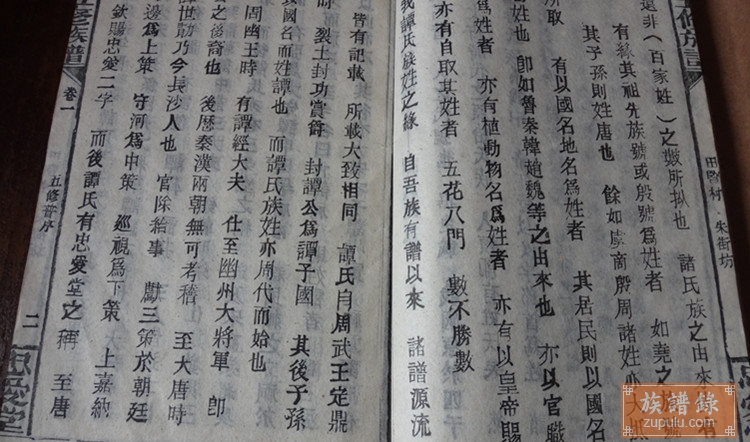 五修族譜
田際村 朱街坊
還非(百家姓)之數所拟也 諸氏族之由來
有緣其祖先族號或殷號為姓者 如堯之
其子孫則姓唐也 餘如虞商殷周諸姓亦大
所取 有以國名地名為姓者 其居民則以國名
姓也 即如魯秦韓趙魏等之由來也 亦以官職
為姓者 亦有植動物名為姓者 亦有以皇帝賜
亦有自取某姓者 五花八門 數不勝數
我譚氏族姓之緣 自吾族有譜以來 諸譜源流
皆有記載 所載大致相同 譚氏自周武王定鼎
時 裂土封功賞爵 封譚公為譚子國 其後子孫
國名而姓譚也 而譚氏族姓亦周代而始也
周幽王時 有譚經大夫 仕至幽州大將軍 即
之後裔也 後歷秦漢兩朝無可考稽 至大唐時
譚世勣乃今長沙人也 官除給事 獻三策於朝廷
邊為上策 守河為中策 巡視為下策 上嘉納
欽賜忠愛二字 而後譚氏有忠愛堂之稱 至唐
五修族譜 卷一 五修譜序 二 忠愛堂
族譜錄
zupulu.com